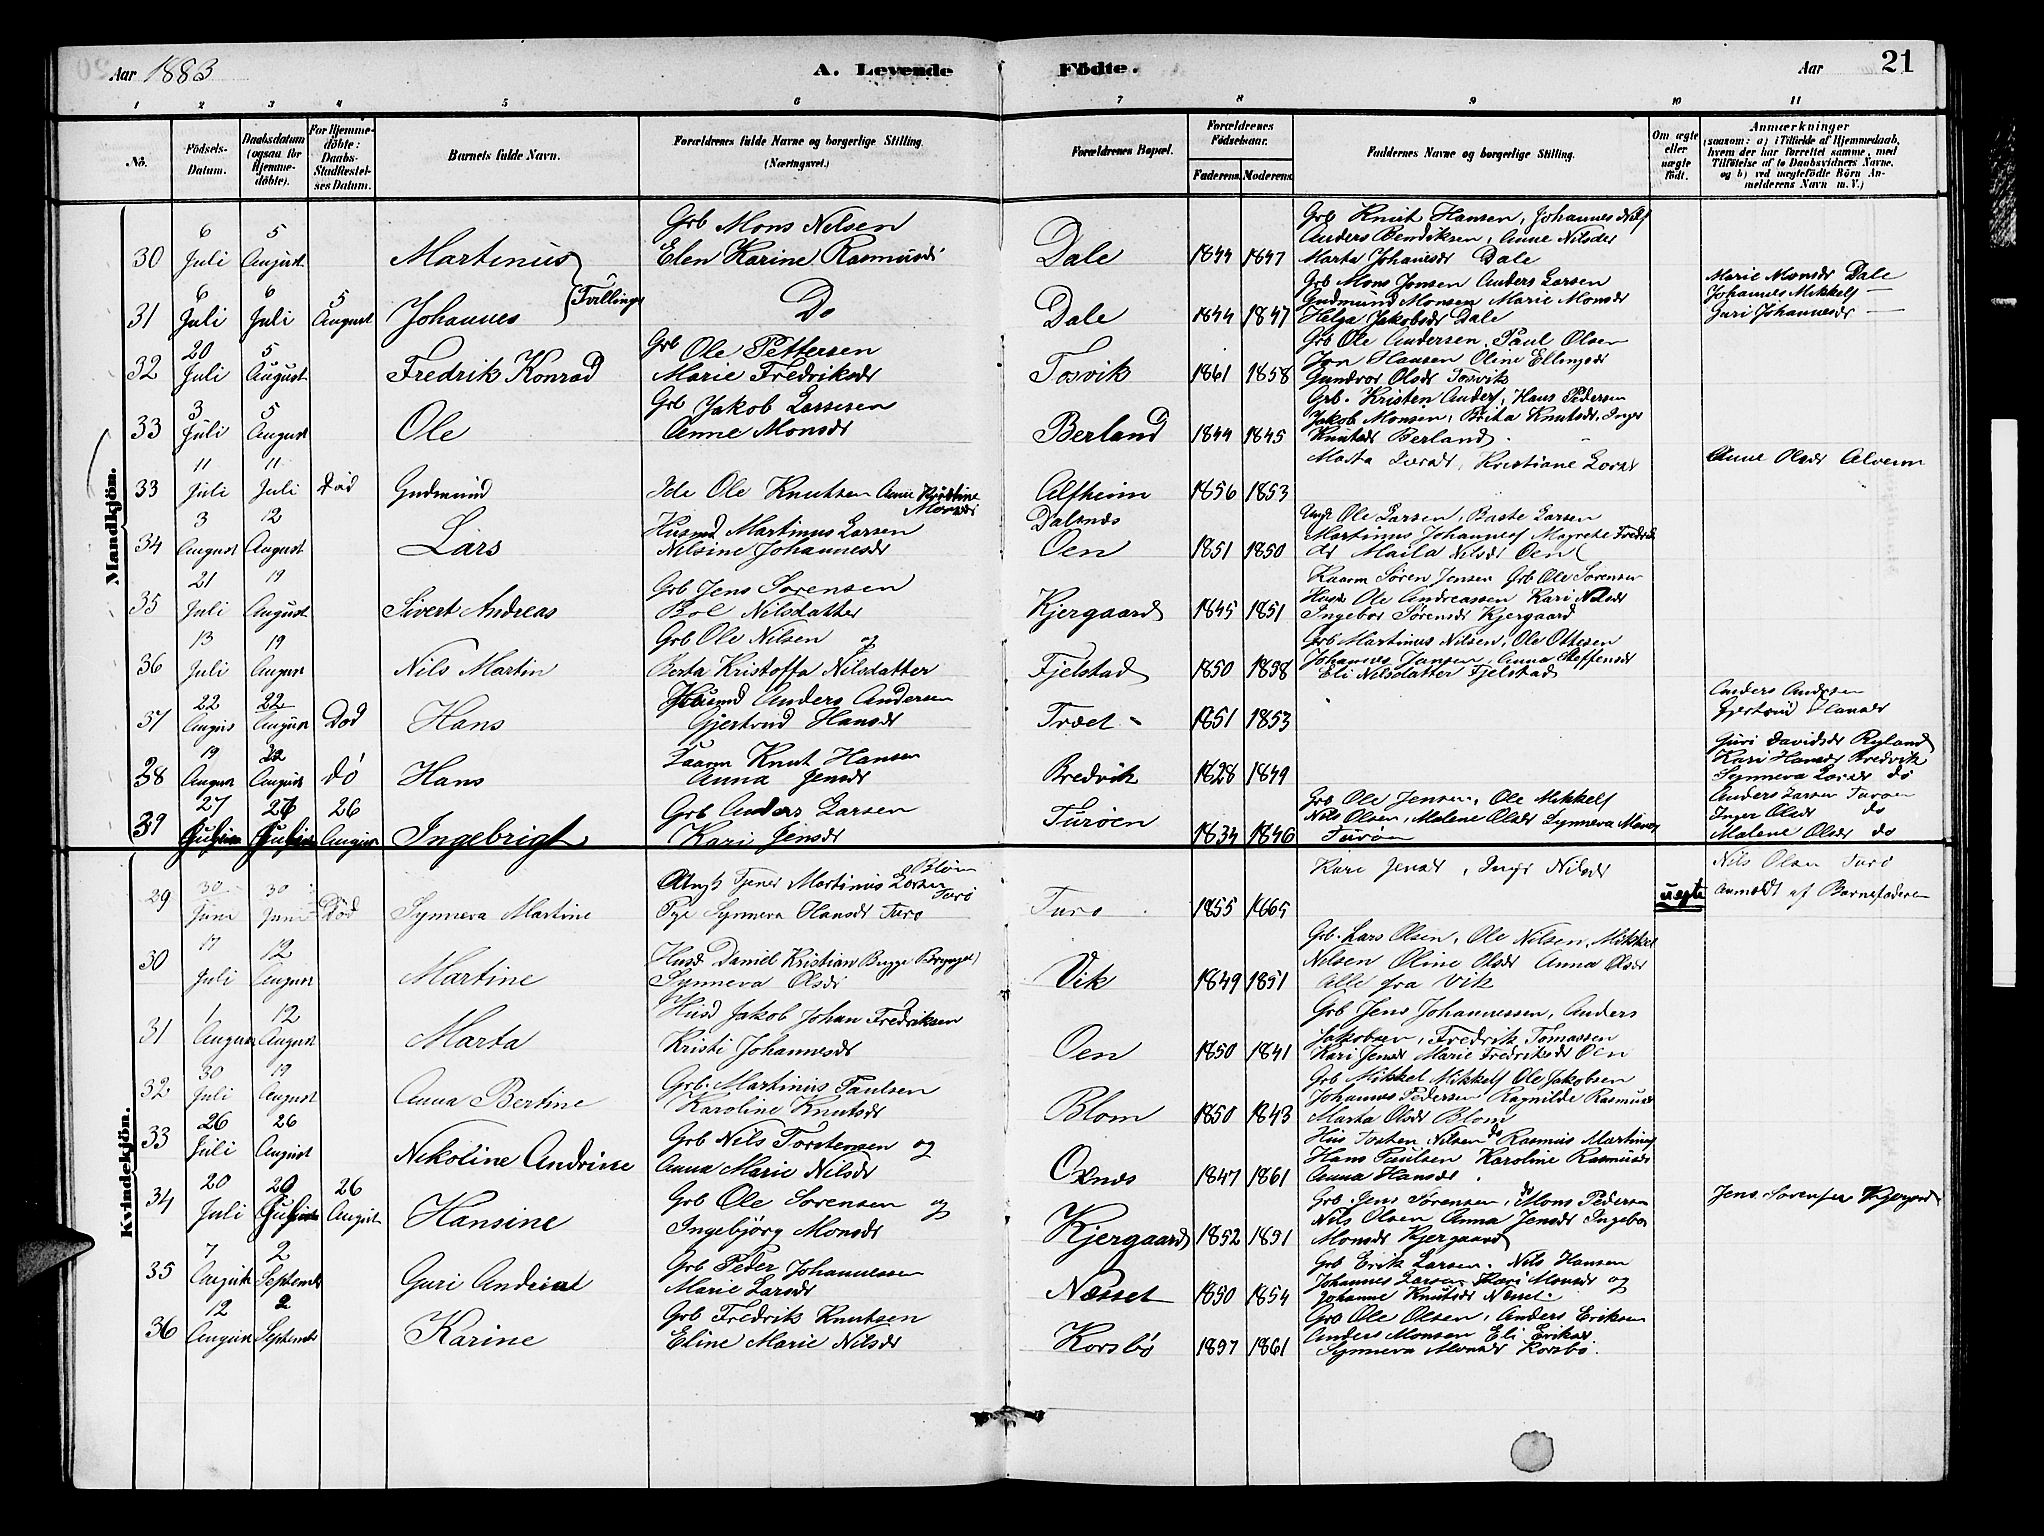 Aar 1883
A. Levende Födte.
Aar
21
1 2 3 4 5 6 7 8 9 10 11
No.
Födsels-Datum.
Daabsdatum (ogsaa for Hjemme-döbte).
For Hjemme-döbte: Daabs-Stadfæstel-ses Datum.
Barnets fulde Navn.
Forældrenes fulde Navne og borgerlige Stilling. (Næringsvei.)
Forældrenes Bopæl.
Forældrenes Födselsaar.
Faderens. Moderens.
Faddernes Navne og borgerlige Stilling.
Om ægte eller uægte födt.
Anmærkninger
(saasom: a) i Tilfælde af Hjemmedaab, hvem der har forrettet samme, med Tilföielse af to Daabsvidners Navne, og b) ved uægtefödte Börn An-melderens Navn m. V.)
Mandkjön.
30 6 Juli 5 August Martinus Grb Mons Nilsen Elen Karine Rasmusdr Dale 1844 1847 Grb Knut Hansen, Johannes Nils
Anders Bendiksen, Anne Nilsdr
Marta Johansdr Dale
31 6 Juli 6 Juli 5 August Johannes (Tvillinger Do Dale 1844 1847 Grb Mons Jonsen Anders Larsen
Gudmund Monsen Marie Monsdr
Helga Jakobsdr Dale
Marie Monsdr Dale
Johannes Mikkels —
Guri Johannesdr —
32 20 Juli 5 August Fredrik Konrad Grb Ole Pettersen Marie Fredriksdr Tosvik 1861 1858 Grb Ole Andersen, Paul Olsen
Jon Hansen Oline Ellingsdr
Gundvor Olsdr Tosvik
33 3 Juli 5 August Ole Grb Jakob Larssen Anne Monsdr Berland 1844 1845 Grb. Kristen Anders, Hans Pedersen
Jakob Monsen, Brita Knutsdr, Inger
Knutsdr Berland
33 11 Juli 11 Juli Död Gudmund Ole Knutsen Anne Kirstine Monsdr Alfheim 1856 1853
Anne Olsdr
34 3 August 12 August Lars Husmd Martinus Larsen Nilsine Johannesdr Dalsnes Oen 1851 1850 Ungk Ole Larsen, Baste Larsen
Martinus Johannes Magrete Fredriks
dr Nilsdr Oen
35 21 Juli 19 August Sivert Andreas Grb Jens Sørensen Nilsdatter Kjergaard 1845 1851 Kaarm Søren Jensen Grb Ole Sørensen
Husm Ole Andreassen Kari Nilsdr
Ingebor Sørensdr Kjergaard
36 13 Juli 19 August Nils Martin Grb Ole Nilsen og Berta Kristoffa Nilsdatter Fjelstad 1850 1858 Grb Martinus Nilsen, Ole Ottesen
Johannes Jansen, Anna Steffensdr
Eli Nilsdatter Fjelstad
37 22 August 22 August Död Hans Husmd Anders Andersen Gjertrud Hansdr Træet 1851 1853
Anders Andersen
Gjertrud Hansdr
38 19 August 22 August dö Hans Kaarm Knut Hansen Anna Jensdr Bredvik 1828 1849
Guri Davidsdr Ryland
Kari Hansdr Bredvik
Synneva do
39 27 26 26 August Ingebrigt Grb Anders Larsen Kari Jensdr Turöen 1834 1846 Grb Ole Jensen, Ole Mikkels
Nils Olsen, Malene Olsdr Synneva
Turöen
Anders Larsen Turöen
Inger Olsdr do
Malene Olsdr do
Kvindekjön.
29 30 Juni 30 Juni Död Synneva Martine Ungk Tjener Martinus Larsen Blöm Turö Pge Synneva Hansdr Turö Turö 1855 1865 Kari Jensdr, Inger Nilsdr
uægte
Nils Olsen Turö
Anmeldt af Barnefaderen
30 17 Juli 12 August Martine Husd Daniel Kristian Synneva Olsdr Vik 1849 1851 Grb. Lars Olsen, Ole Nilsen, Mikkel
Nilsen Oline Olsdr Anna Olsdr
Alle fra Vik
31 1 August 12 August Marta Husd Jakob Johan Fredriksen Kristi Johannesdr Oen 1850 1841 Grb Jens Johannessen, Anders
Jakobsen, Fredrik Tomassen
Kari Jensdr Marie Fredriksdr Oen
32 30 Juli 19 August Anna Bertine Grb. Martinus Paulsen Karoline Knutsdr Blom 1850 1843 Grb Mikkel Mikkels Ole Jakobsen
Johannes Pedersen Ragnilde Rasmusdr
Marta Olsdr Blom
33 26 Juli 26 August Nikoline Andrine Grb Nils Torstensen og Anna Marie Nilsdr Oxnes 1847 1861 Hus Torsten Nilsen do Rasmus Martinus
Hans Paulsen Karoline Rasmusdr
Anna Hansdr
34 20 Juli 20 26 August Hansine Grb Ole Sörensen og Ingebjörg Monsdr Kjergaard 1852 1851 Grb. Jens Sørensen, do Mons Pedersen
Nils Olsen Anna Jensdr Ingebor
Monsdr Kjergaard
Jens Sørensen Kjergaard
35 7 August 2 September Guri Andrea Grb Peder Johannessen Marie Larsdr Næsset 1850 1854 Grb Erik Larsen. Nils Hansen
Johannes Larsen Kari Monsdr og
Johanne Knutsdr Næsset
36 12 August 2 September Karine Grb Fredrik Knutsen Eline Marie Nilsdr Korsbö 1857 1861 Grb Ole Olsen, Anders Eriksen
Anders Monsen Eli Eriksdr
Synneva Monsdr Korsbö.